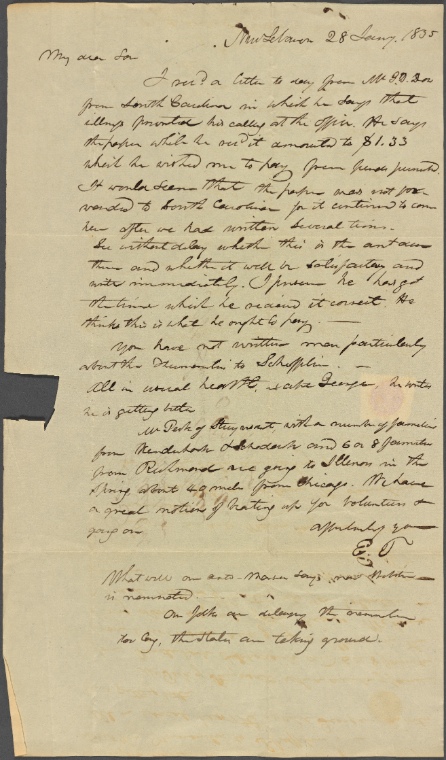 New Lebanon 28 Jany. 1835
My dear Son
I recd a letter to day from Mr. J.D.
from South Carolina in which he says that
illness prevented his calling at the office. He says
the paper while he recd it amounted to $1.33
which he wished me to pay from funds
It would seem that the paper was not for-
warded to South Carolina for it continued to come
here after we had written several times.
See without delay whether this is the amt due
them and whether it will be satisfactory and
write immediately. I presume he has got
the time which he received it correct. He
thinks this is what he ought to pay. —
You have not written me particularly
about the to Scheffelin. —
All in usual health, as also George, he writes
he is getting better
Mr Peck of Stuyvesant, with a number of families
from Kinderhook & Schodack and 6 or 8 families
from Richmond are going to Illinois in the
Spring about 40 miles from Chicago. We have
a great notion of beating up for Volunteers &
going on affectionately yours
E. T
What will our anti-Mason say now Webster
is nominated.
Our folks are delaying the
too long, the States are taking ground.